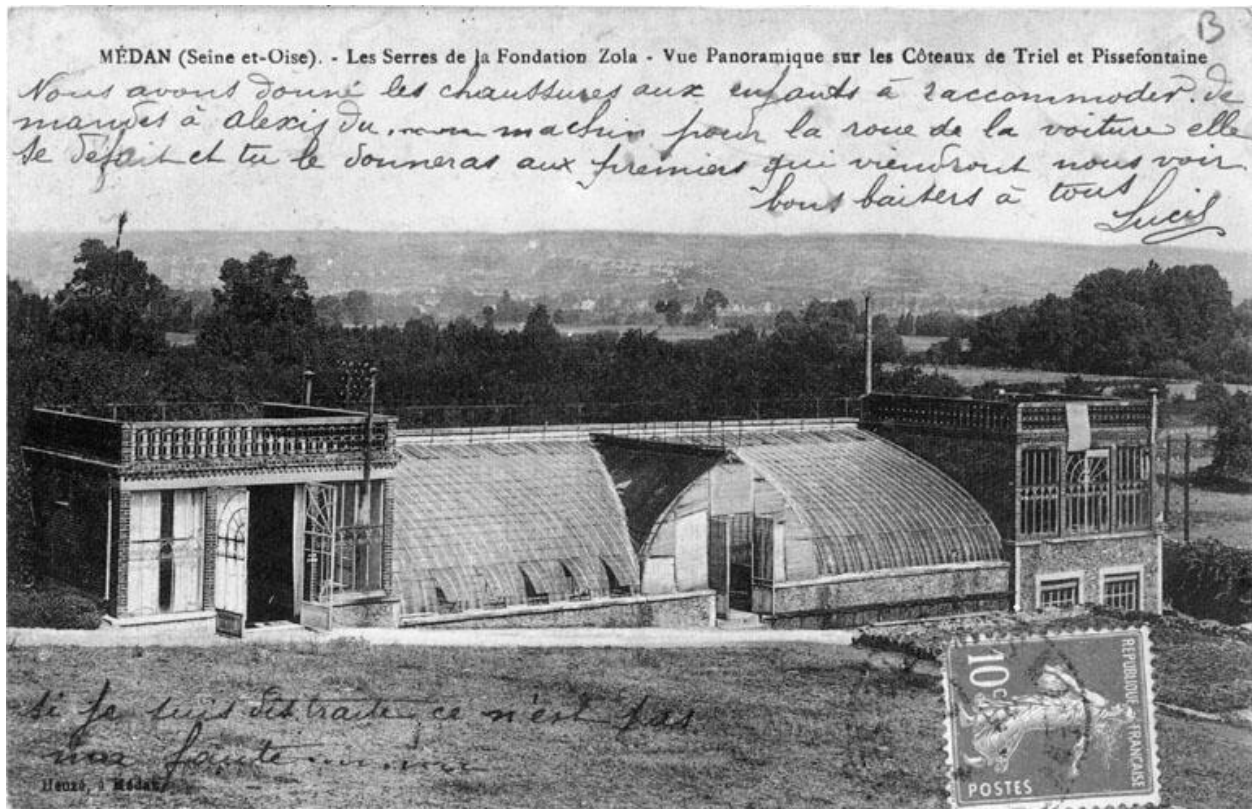 B
MÉDAN (Seine et-Oise). - Les Serres de la Fondation Zola - Vue Panoramique sur les Côteaux de Triel et Pissefontaine
Nous avons donné les chaussures aux enfants à raccommoder. de
mandes à alexis du ...... machin pour la roue de la voiture elle
se défait et tu le donneras aux premiers qui viendront nous voir.
bons baisers à tous
Lucie
si je suis distraite ce n'est pas
ma faute ......
Heuzé, à Médan
10c
REPUBLIQUE FRANÇAISE
POSTES